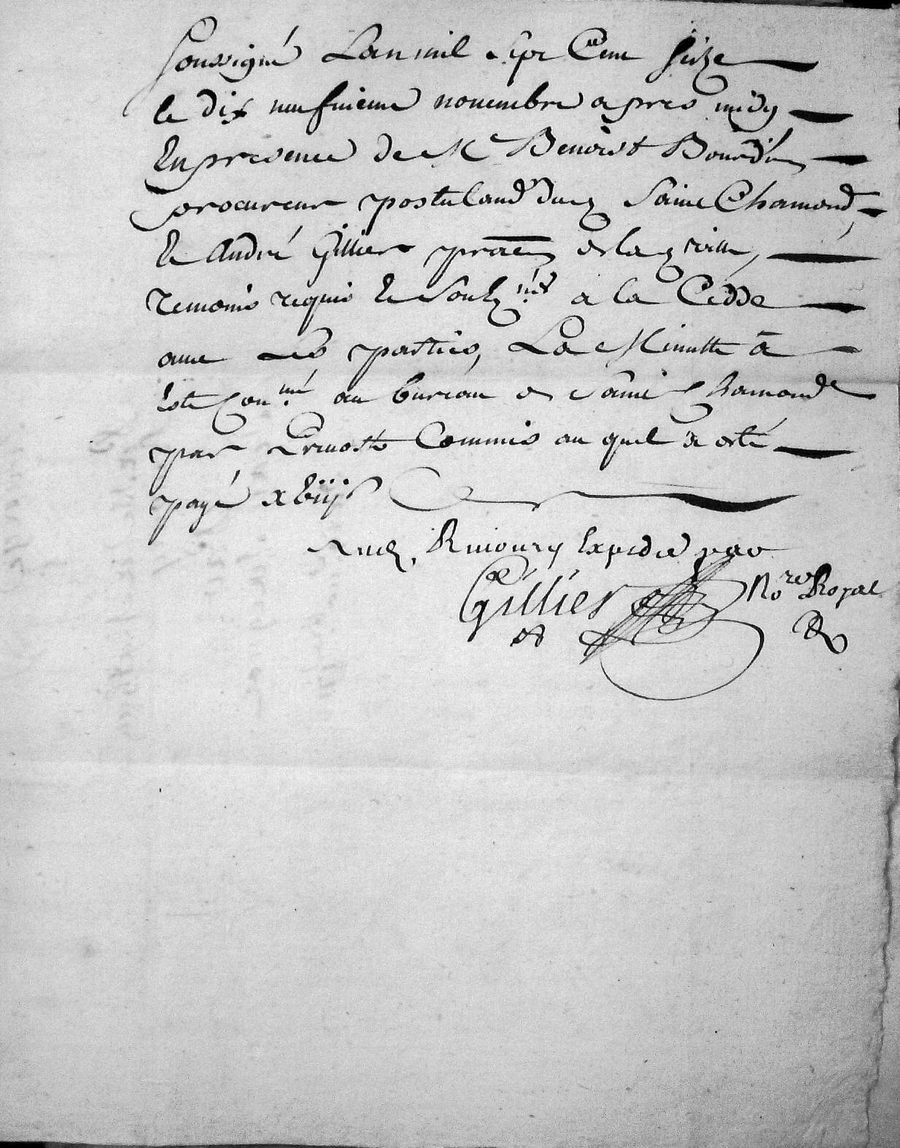 soussigné Lan mil sept Cent seize
le dix neufuieme novembre apres midy
En presence de Me Benoist Bourdin
procureur postuland duq Saint Chamond,
Et André Gillier praēn de la q ville,
temoins requis Et soubznés a la Cedde
auec Les parties, La Minutte a
esté Connée au bureau de Saint Chamond
par commis au quel a esté
payé xbiijs
Expedié par
Gillier Nore Royal